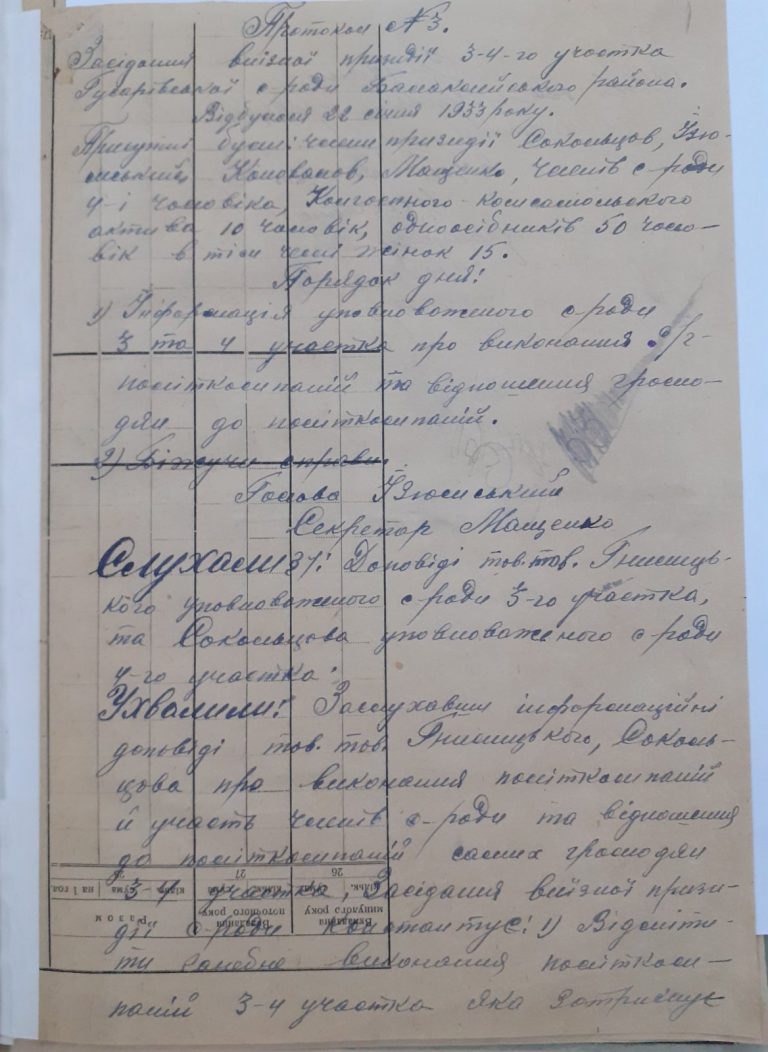 Протокол №3.
Засідання виїзної призидії 3-4-го участка
Гусарівської с-ради Балаклійського района.
Відбулося 22 січня 1933 року.
Присутні були: члени призидії Сокольцов, Ізю-
мський, Коновалов, Мащенко, членів с-ради
4-і чоловіка, Колгоспного-комсомольського
актива 10 чоловік, одноосібників 50 чоло-
вік в тім числі жінок 15.
Порядок дня!
1) Інформація уповноваженого с-ради
3 та 4 участка про виконання
політкомпаній та відношення грома-
дян до політкомпаній.
2) Біжучи справи.
Голова Ізюмський
Секретар Мащенко
Слухали: Доповіді тов. тов. Гнилиць-
кого уповноваженого с-ради 3-го участка,
та Сокольцова уповноваженого с-ради
4-го участка.
Ухвалили: Заслухавши інформаційні
доповіді тов. тов. Гнилицького, Соколь-
цова про виконання політкомпаній
й участь членів с-ради та відношення
до політкомпаній самих громодян
3-4 участка, Засідання виїзної призи-
дії с-ради константує: 1) Відміти-
ти ганебне виконання політком-
паній 3-4 участка яка
26
27
Вкладання минулого року
Вкладання поточного року
Разом
кільк.
сума
кільк.
сума
на 1 гол.